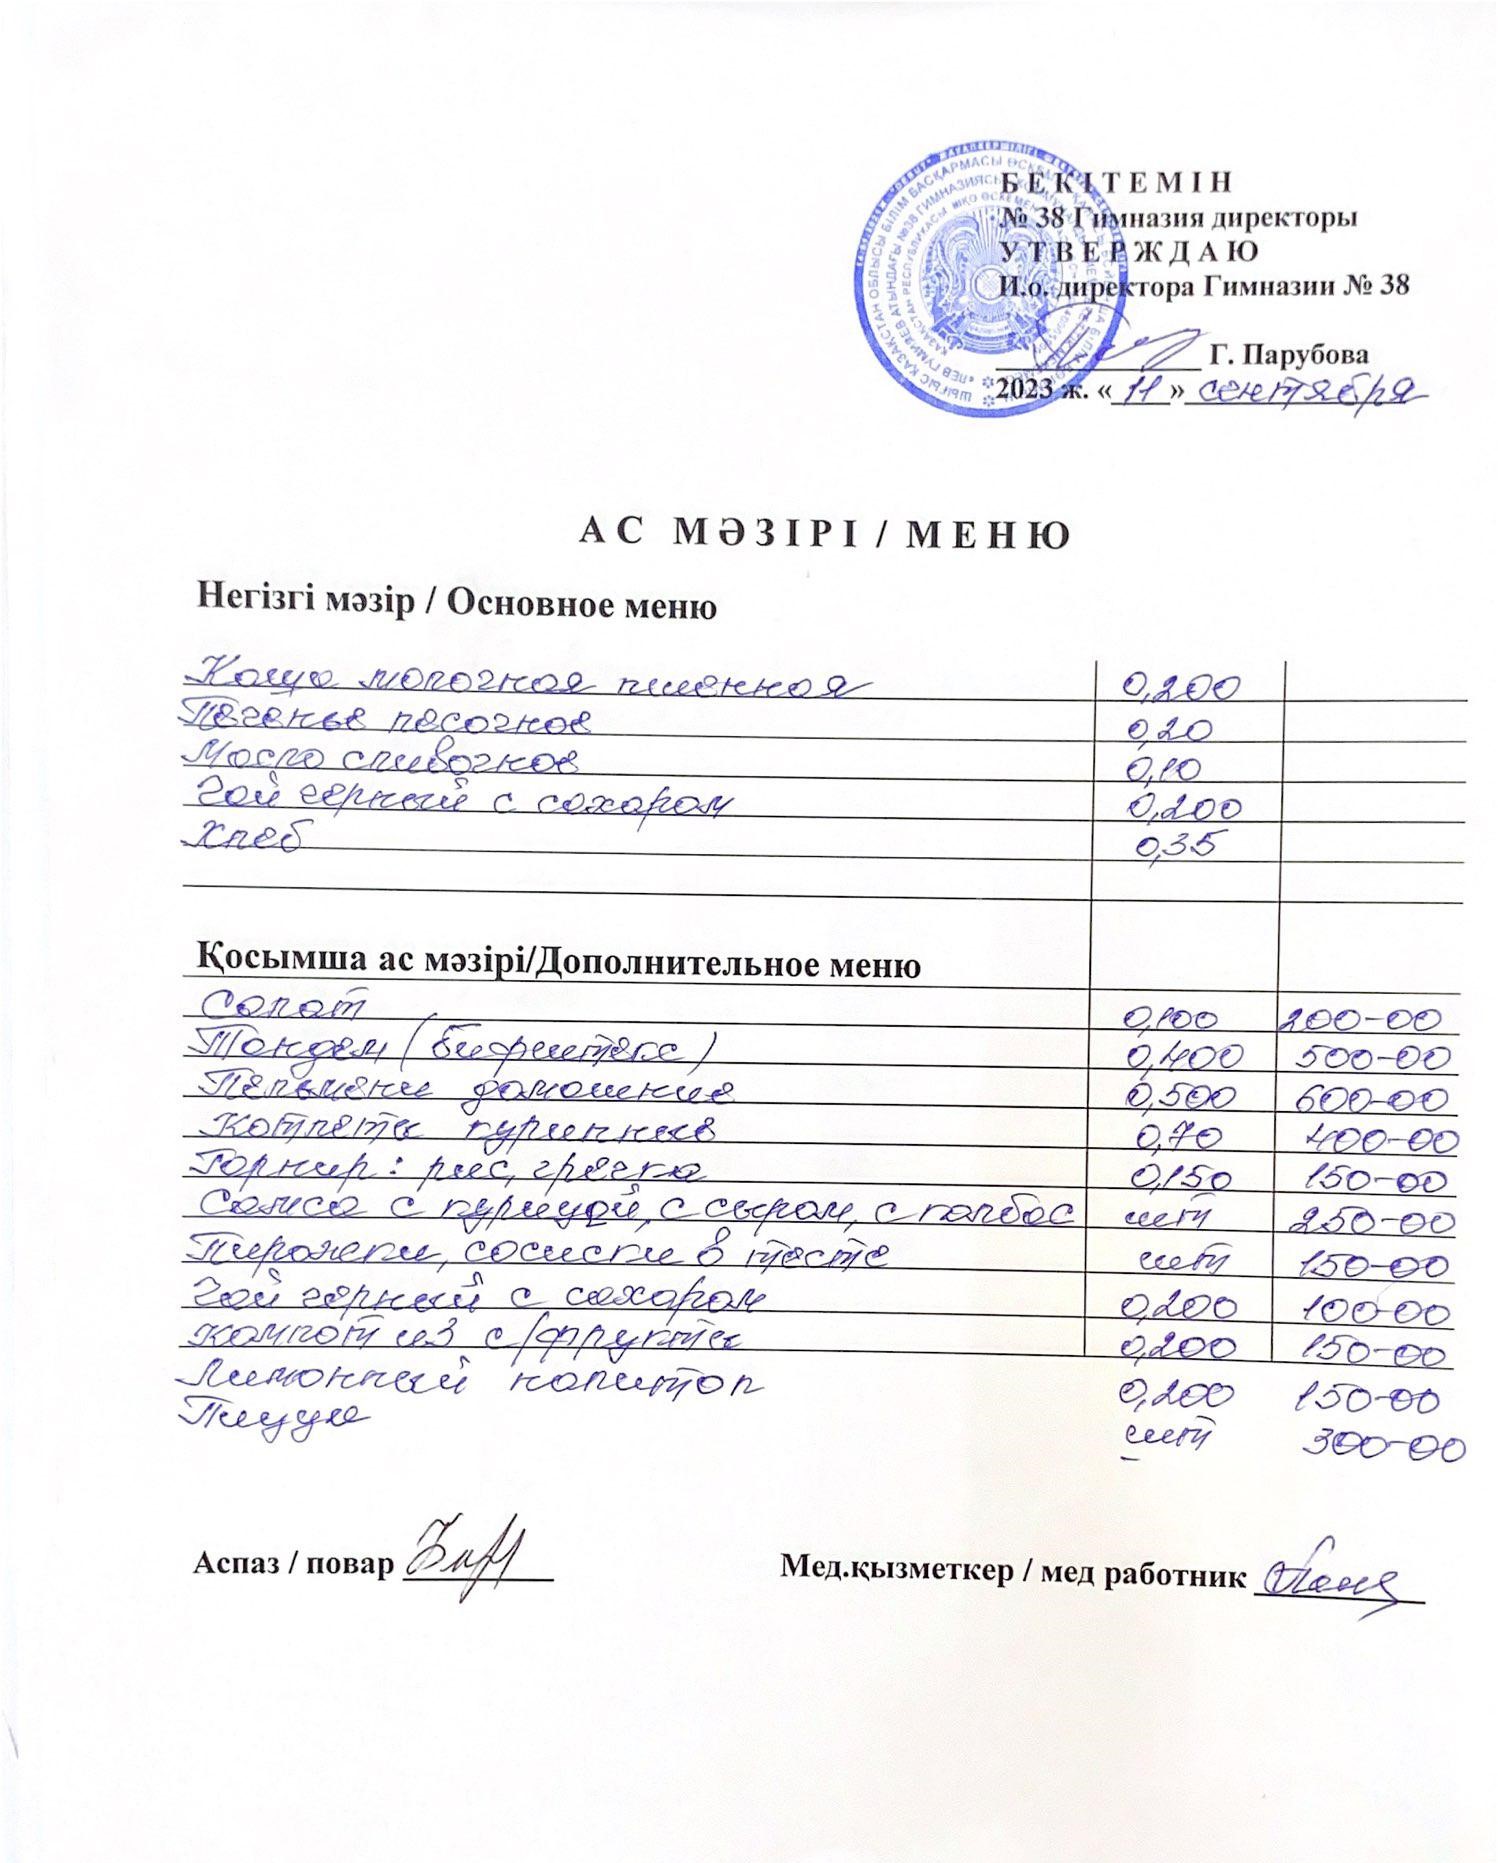 БЕКІТЕМІН
№ 38 Гимназия директоры
УТВЕРЖДАЮ
И.о. директора Гимназии № 38
Г. Парубова
2023 ж. «11» сентября
АС МӘЗІРІ / МЕНЮ
Негізгі мәзір / Основное меню
Каша молочная пшенная 0,200
Печенье песочное 0,20
Масло сливочное 0,10
Чай черный с сахаром 0,200
Хлеб 0,35
Қосымша ас мәзірі/Дополнительное меню
Салат 0,100 200-00
Тандем (бифштекс) 0,400 500-00
Пельмени домашние 0,500 600-00
Котлеты куриные 0,70 400-00
Гарнир: рис, гречка 0,150 150-00
Самса с курицей, с сыром, с колбас шт 250-00
Пирожки, сосиски в тесте шт 150-00
Чай черный с сахаром 0,200 100-00
Компот из с/фрукты 0,200 150-00
Лимонный напиток 0,200 150-00
Пицца шт 300-00
Аспаз / повар
Мед.қызметкер / мед работник